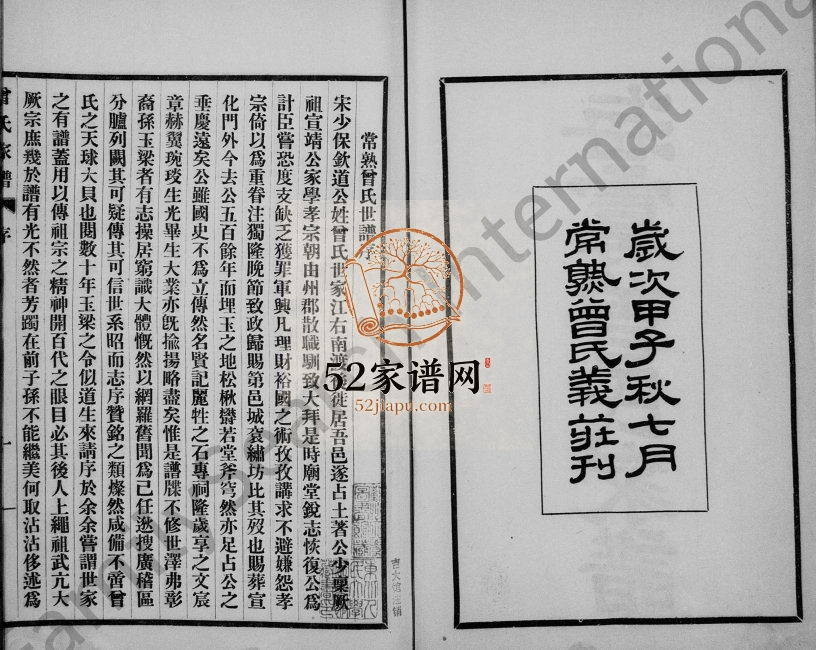 歲次甲子秋七月
常熟曾氏義莊刊
常熟曾氏世譜序
宋少保欽道公姓曾氏世家江右南渡徙居吾邑遂占土著公少稟厥
祖宣靖公家學孝宗朝由州郡散職馴致大拜是時廟堂銳志恢復公爲
計臣嘗恐度支缺乏獲罪軍興凡理財裕國之術孜孜講求不避嫌怨孝
宗倚以爲重眷注獨隆晚節致政歸賜第邑城袞繡坊比其歿也賜葬宣
化門外今去公五百餘年而埋玉之地松楸欝若堂斧穹然亦足占公之
垂慶遠矣公雖國史不爲立傳然名賢記麗牲之石專祠隆歲享之文宸
章赫翼琬琰生光畢生大業亦旣揄揚略盡矣惟是譜牒不修世澤弗彰
裔孫玉梁者有志操居窮識大體慨然以網羅舊聞爲己任逖搜廣稽區
分臚列闕其可疑傳其可信世系昭而志序贊銘之類燦然咸備不啻曾
氏之天球大貝也閱數十年玉梁之令似道生來請序於余余嘗謂世家
之有譜蓋用以傳祖宗之精神開百代之眼目必其後人上繩祖武亢大
厥宗庶幾於譜有光不然者芳躅在前子孫不能繼美何取沾沾侈述爲
曾氏家譜
序
一
52家谱网
52jiapu.com
FamilySearch International